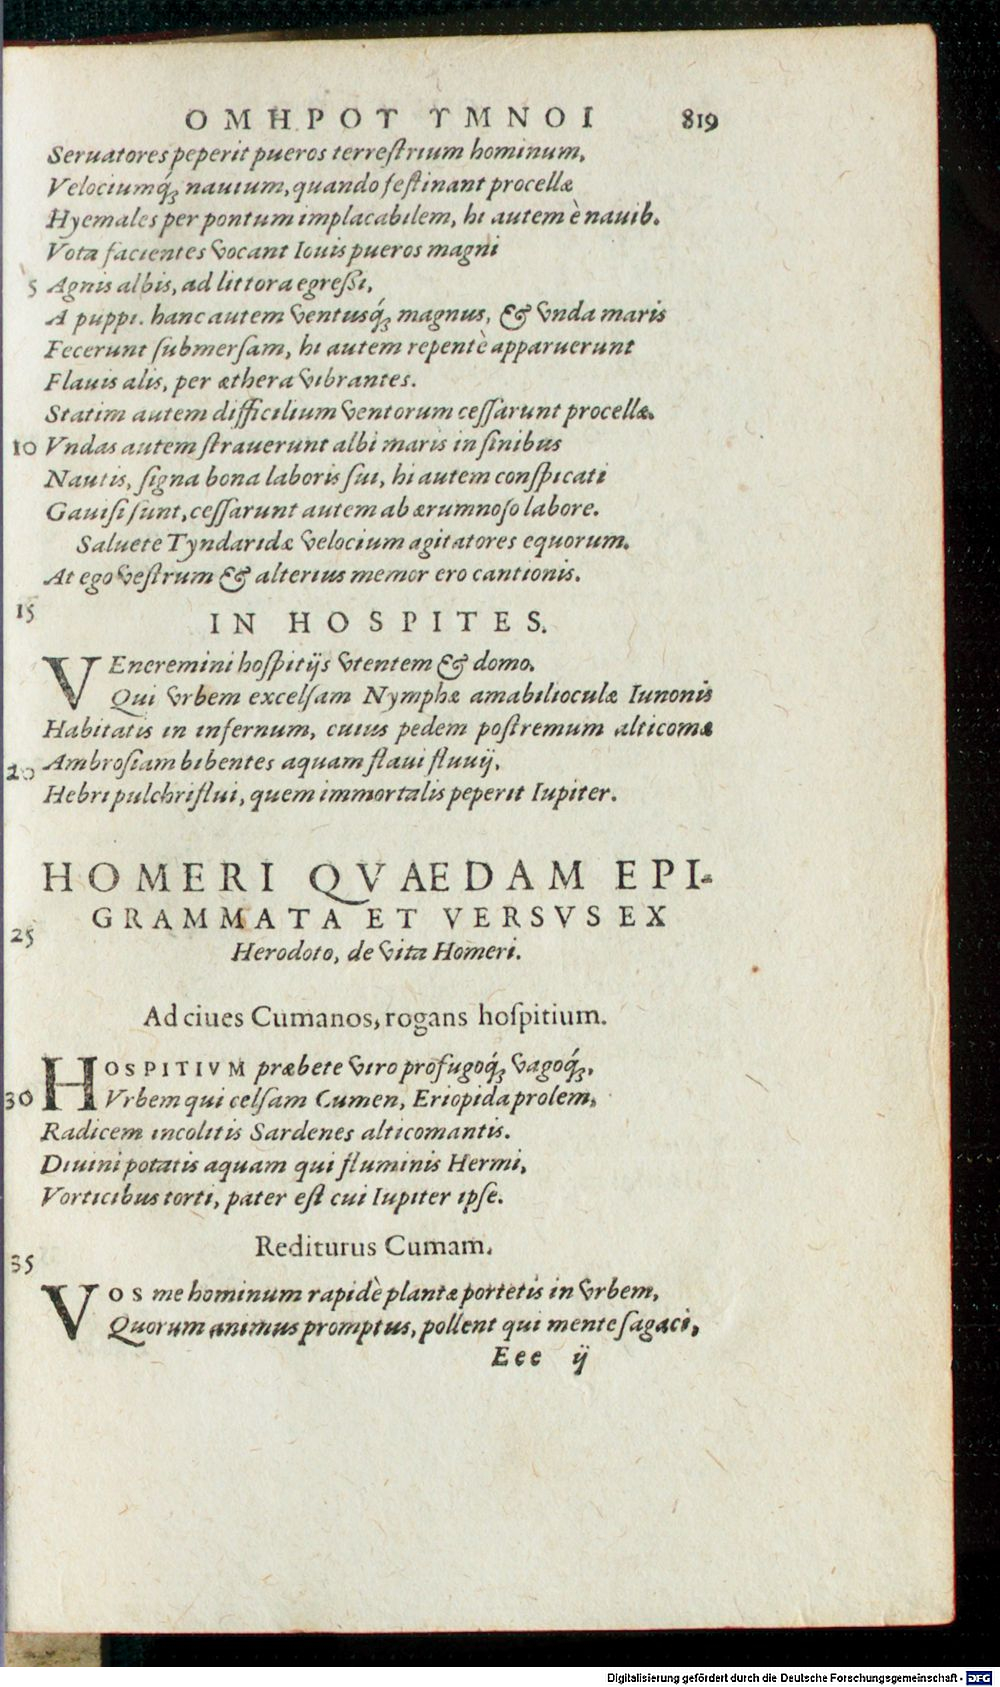 ΟΜΗΡΟΥ ΥΜΝΟΙ 819
Seruatores peperit pueros terreſtrium hominum,
Velociumq́ꝫ nauium, quando feſtinant procellæ
Hyemales per pontum implacabilem, hi autem è nauib.
Vota facientes vocant Iouis pueros magni
5 Agnis albis, ad littora egreſsi,
A puppi. hanc autem ventusq́ꝫ magnus, & vnda maris
Fecerunt ſubmerſam, hi autem repentè apparuerunt
Flauis alis, per æthera vibrantes.
Statim autem difficilium ventorum ceſſarunt procellæ.
10 Vndas autem ſtrauerunt albi maris in ſinibus
Nautis, ſigna bona laboris ſui, hi autem conſpicati
Gauiſi ſunt, ceſſarunt autem ab ærumnoſo labore.
Saluete Tyndaridæ velocium agitatores equorum.
At ego veſtrum & alterius memor ero cantionis.
15 IN HOSPITES.
VEneremini hoſpitijs vtentem & domo.
Qui vrbem excelſam Nymphæ amabilioculæ Iunonis
Habitatis in infernum, cuius pedem poſtremum alticomæ
20 Ambroſiam bibentes aquam flaui fluuij,
Hebri pulchriflui, quem immortalis peperit Iupiter.
HOMERI QVAEDAM EPI-
25 GRAMMATA ET VERSVS EX
Herodoto, de vita Homeri.
Ad ciues Cumanos, rogans hoſpitium.
HOSPITIVM præbete viro profugoq́ꝫ vagoq́ꝫ,
30 Vrbem qui celſam Cumen, Eriopida prolem,
Radicem incolitis Sardenes alticomantis.
Diuini potatis aquam qui fluminis Hermi,
Vorticibus torti, pater eſt cui Iupiter ipſe.
Rediturus Cumam.
35
VOS me hominum rapidè plantæ portetis in vrbem,
Quorum animus promptus, pollent qui mente ſagaci,
Eee ij
Digitalisierung gefördert durch die Deutsche Forschungsgemeinschaft - DFG